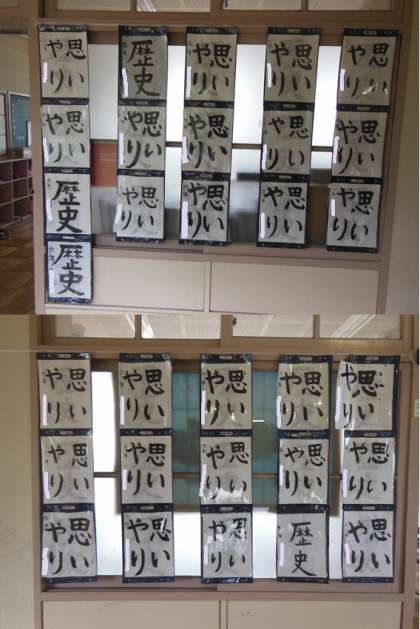 思い
やり
歴史
思い
やり
思い
やり
思い
やり
思い
やり
思い
やり
思い
やり
思い
やり
思い
やり
歴史
思い
やり
思い
やり
思い
やり
思い
やり
歴史
思い
やり
思い
やり
思い
やり
思い
やり
思い
やり
思い
やり
思い
やり
思い
やり
思い
やり
思い
やり
思い
やり
思い
やり
思い
やり
歴史
思い
やり